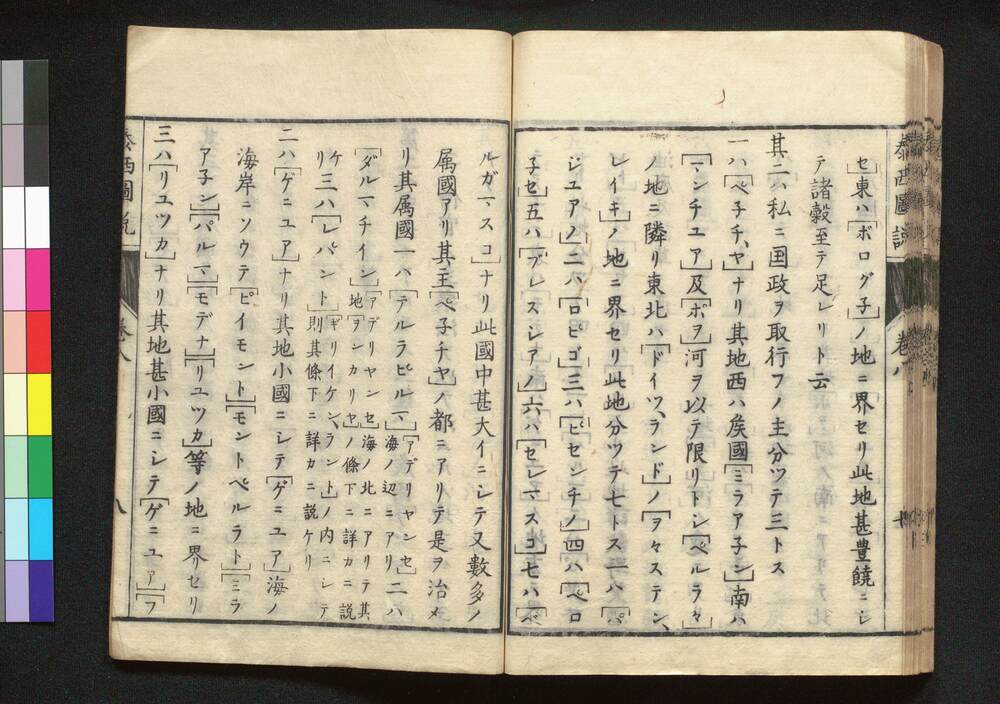 泰西圖説 巻八 七
セ東ハ[ボログ子]ノ地ニ界セリ此地甚豊饒ニシ
テ諸穀至テ足レリト云
其二ハ私ニ国政ヲ取行フノ主分ツテ三トス
一ハ[ペ子チ、ヤ]ナリ其地西ハ矦國[ミラア子ン]南ハ
[マンチユア]及[ポヲ]河ヲ以テ限リトシ[ペルラ々]
ノ地ニ隣リ東北ハ[ドイツ、ランド]ノ[ヲヽステン、
レイキ]ノ地ニ界セリ此地分ツテ七トス一ハ[パ
ジユアノ]二ハ[ロビゴ]三ハ[ピセンチノ]四ハ[ペロ
子セ]五ハ[ブレスシアノ]六ハ[セレマスコ]七ハ[ベ
ルガマスコ]ナリ此國中甚大イニシテ又數多ノ
属國アリ其主[ペ子チヤ]ノ都ニアリテ是ヲ治メ
リ其属國一ハ[テルラピルマ][アデリヤンセ]海ノ辺ニアリ二ハ
[ダルマチイン][アデリヤンセ]海ノ北ニアリテ其地[ヲンカリヤ]ノ條下ニ詳カニ説
ケリ三ハ[レパント][ギリイケン、ラント]ノ内ニシテ則其條下ニ詳カニ説ケリ
二ハ[ゲニユア]ナリ其地小國ニシテ[ゲニユア]海ノ
海岸ニソウテ[ピイモント][モントペルラト][ミラ
ア子ン][パルマ][モデナ][リユツカ]等ノ地ニ界リセリ
三ハ[リユツカ]ナリ其地甚小國ニシテ[ゲニユア][フ
泰西圖説 巻八 八